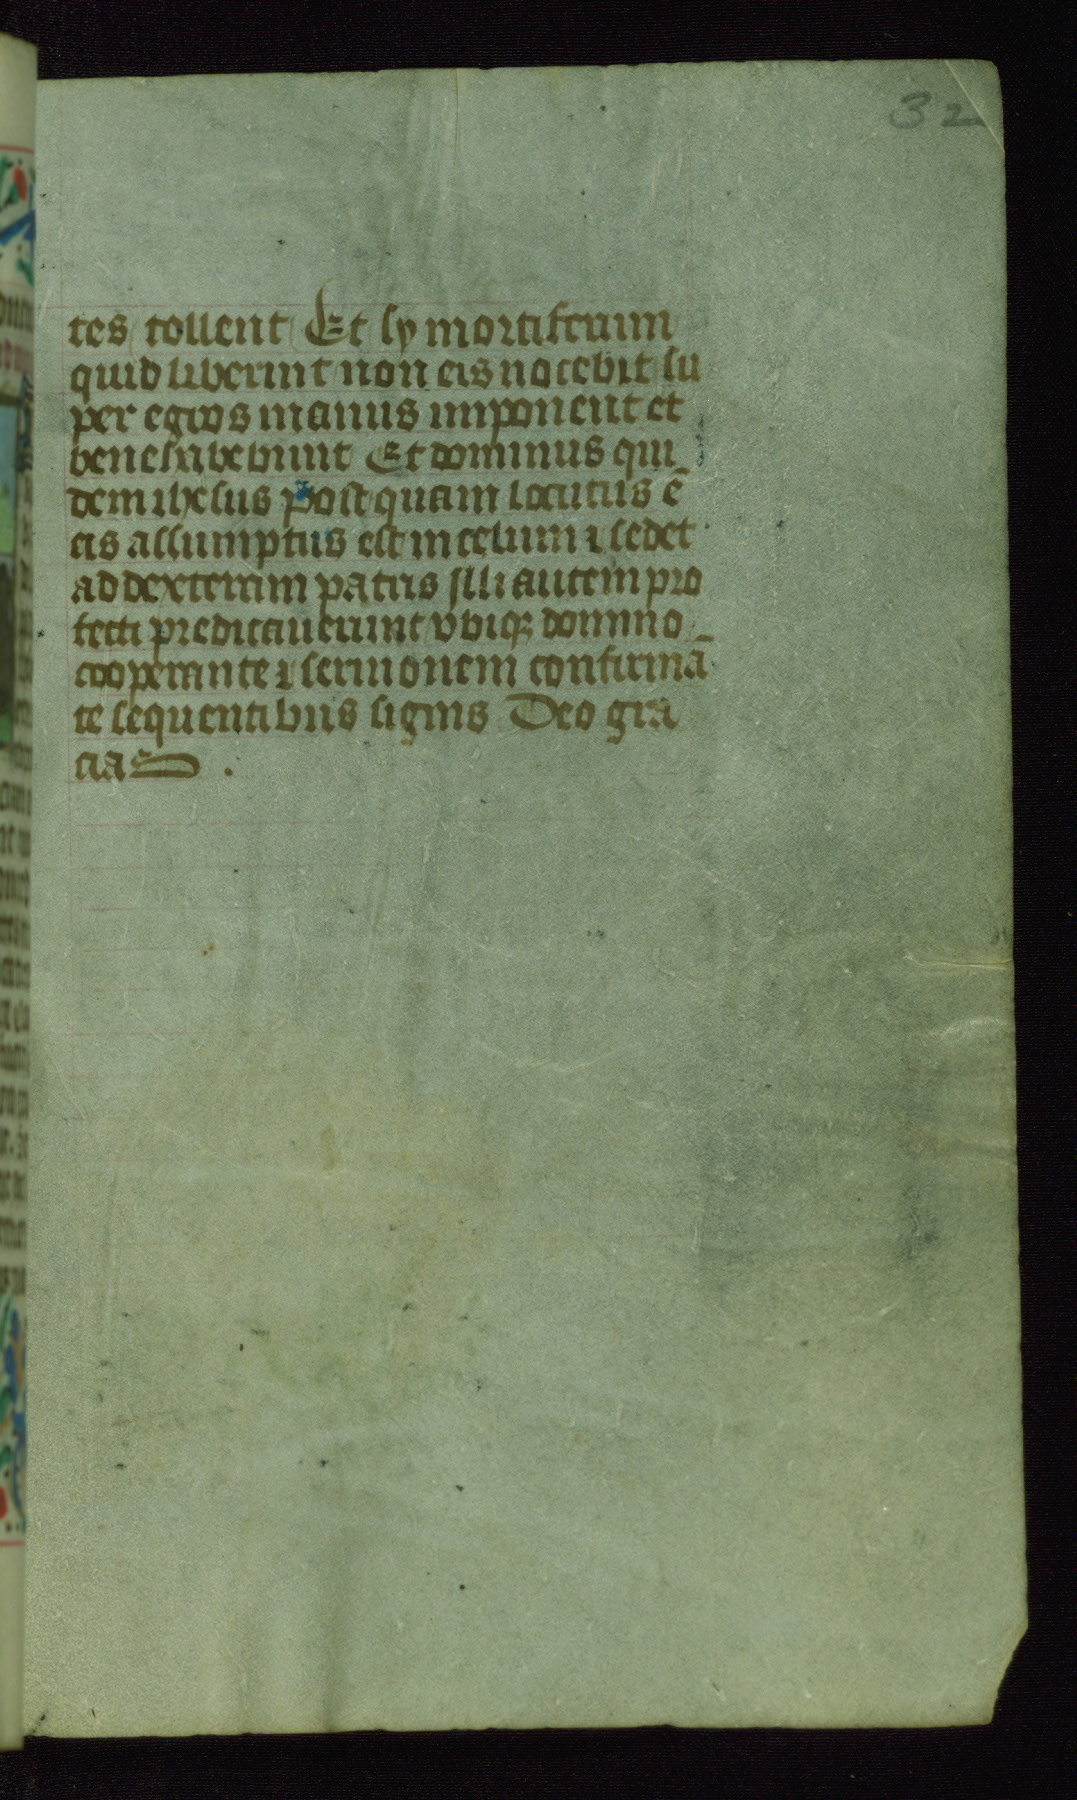 32
tes tollent Et sy mortiferum
quid liberint non eis nocebit su
per egros manus imponent et
bene habebunt Et dominus qui
dem ihesus postquam locutus ē
eis assumptus est in celum ⁊ sedet
ad dexteram patris Illi autem pro
fecti predicauerunt vbiqꝫ domino
cooperante ⁊ sermonem confirmā
te sequentibus signis Deo gra
cias .